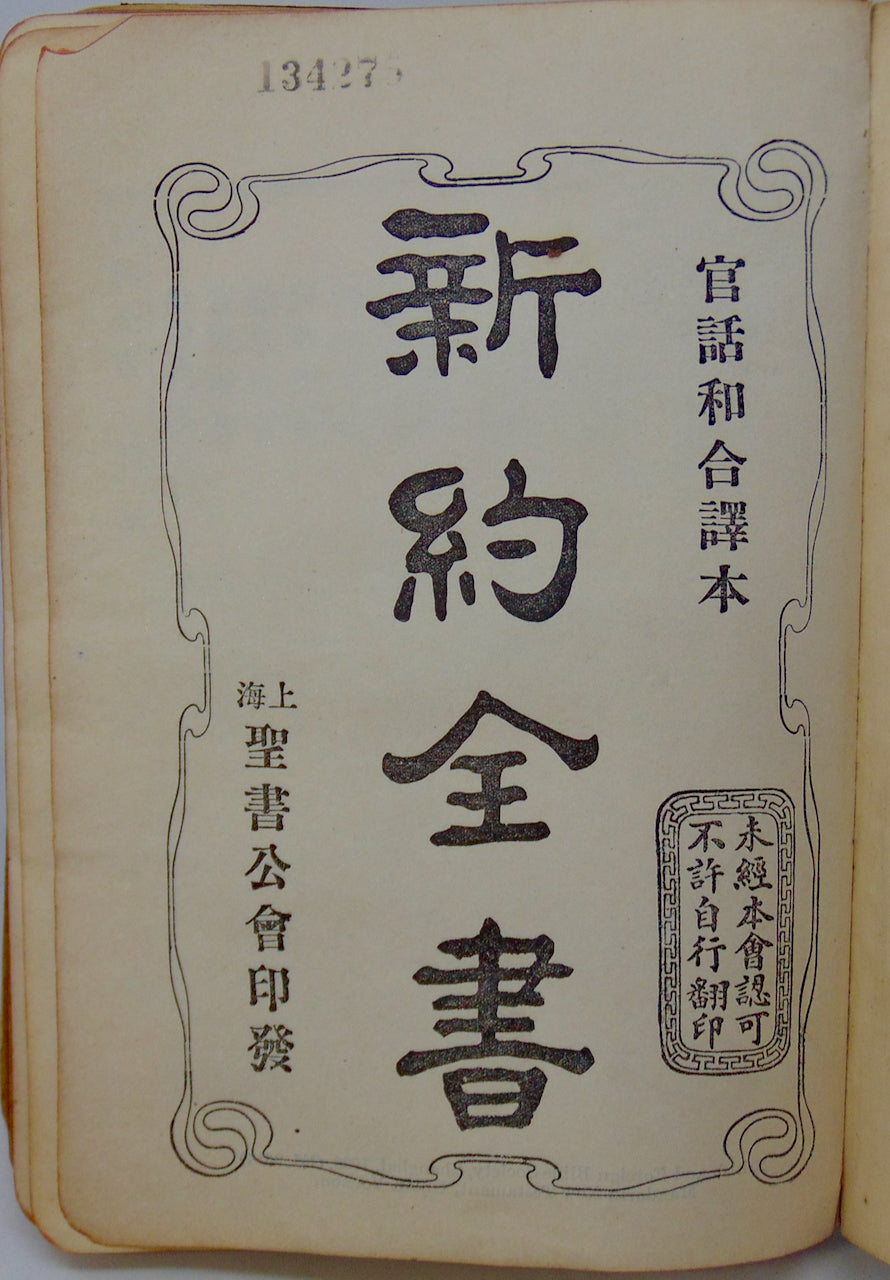 官話和合譯本
未經本會認可
不許自行翻印
新約全書
上海
聖書公會印發